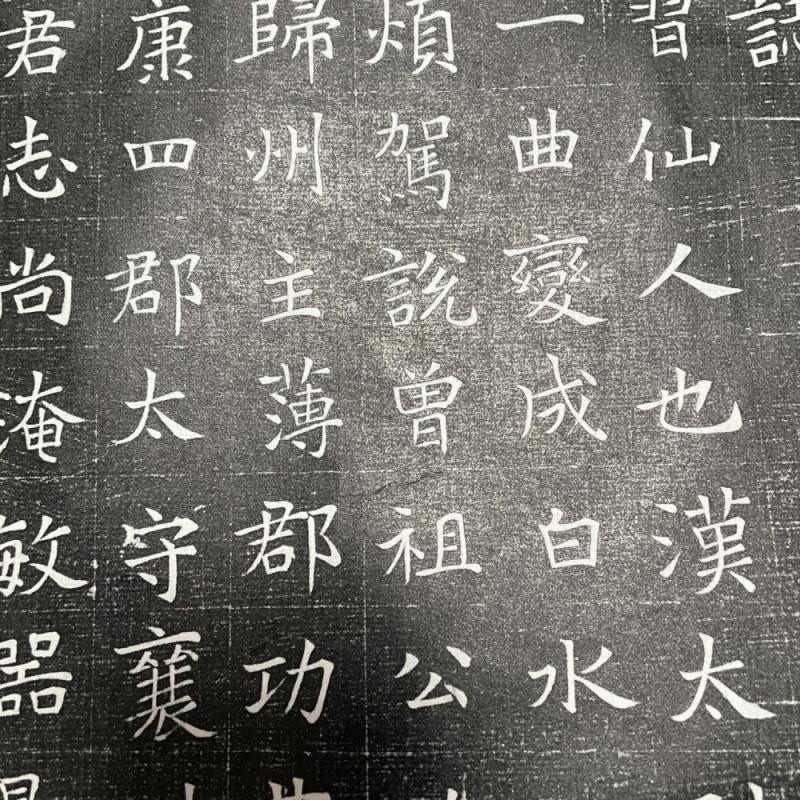 仙人也漢太
習一曲變成白水
煩駕說曾祖公
歸州主薄郡功
康四郡太守襄
君志尚淹敏器